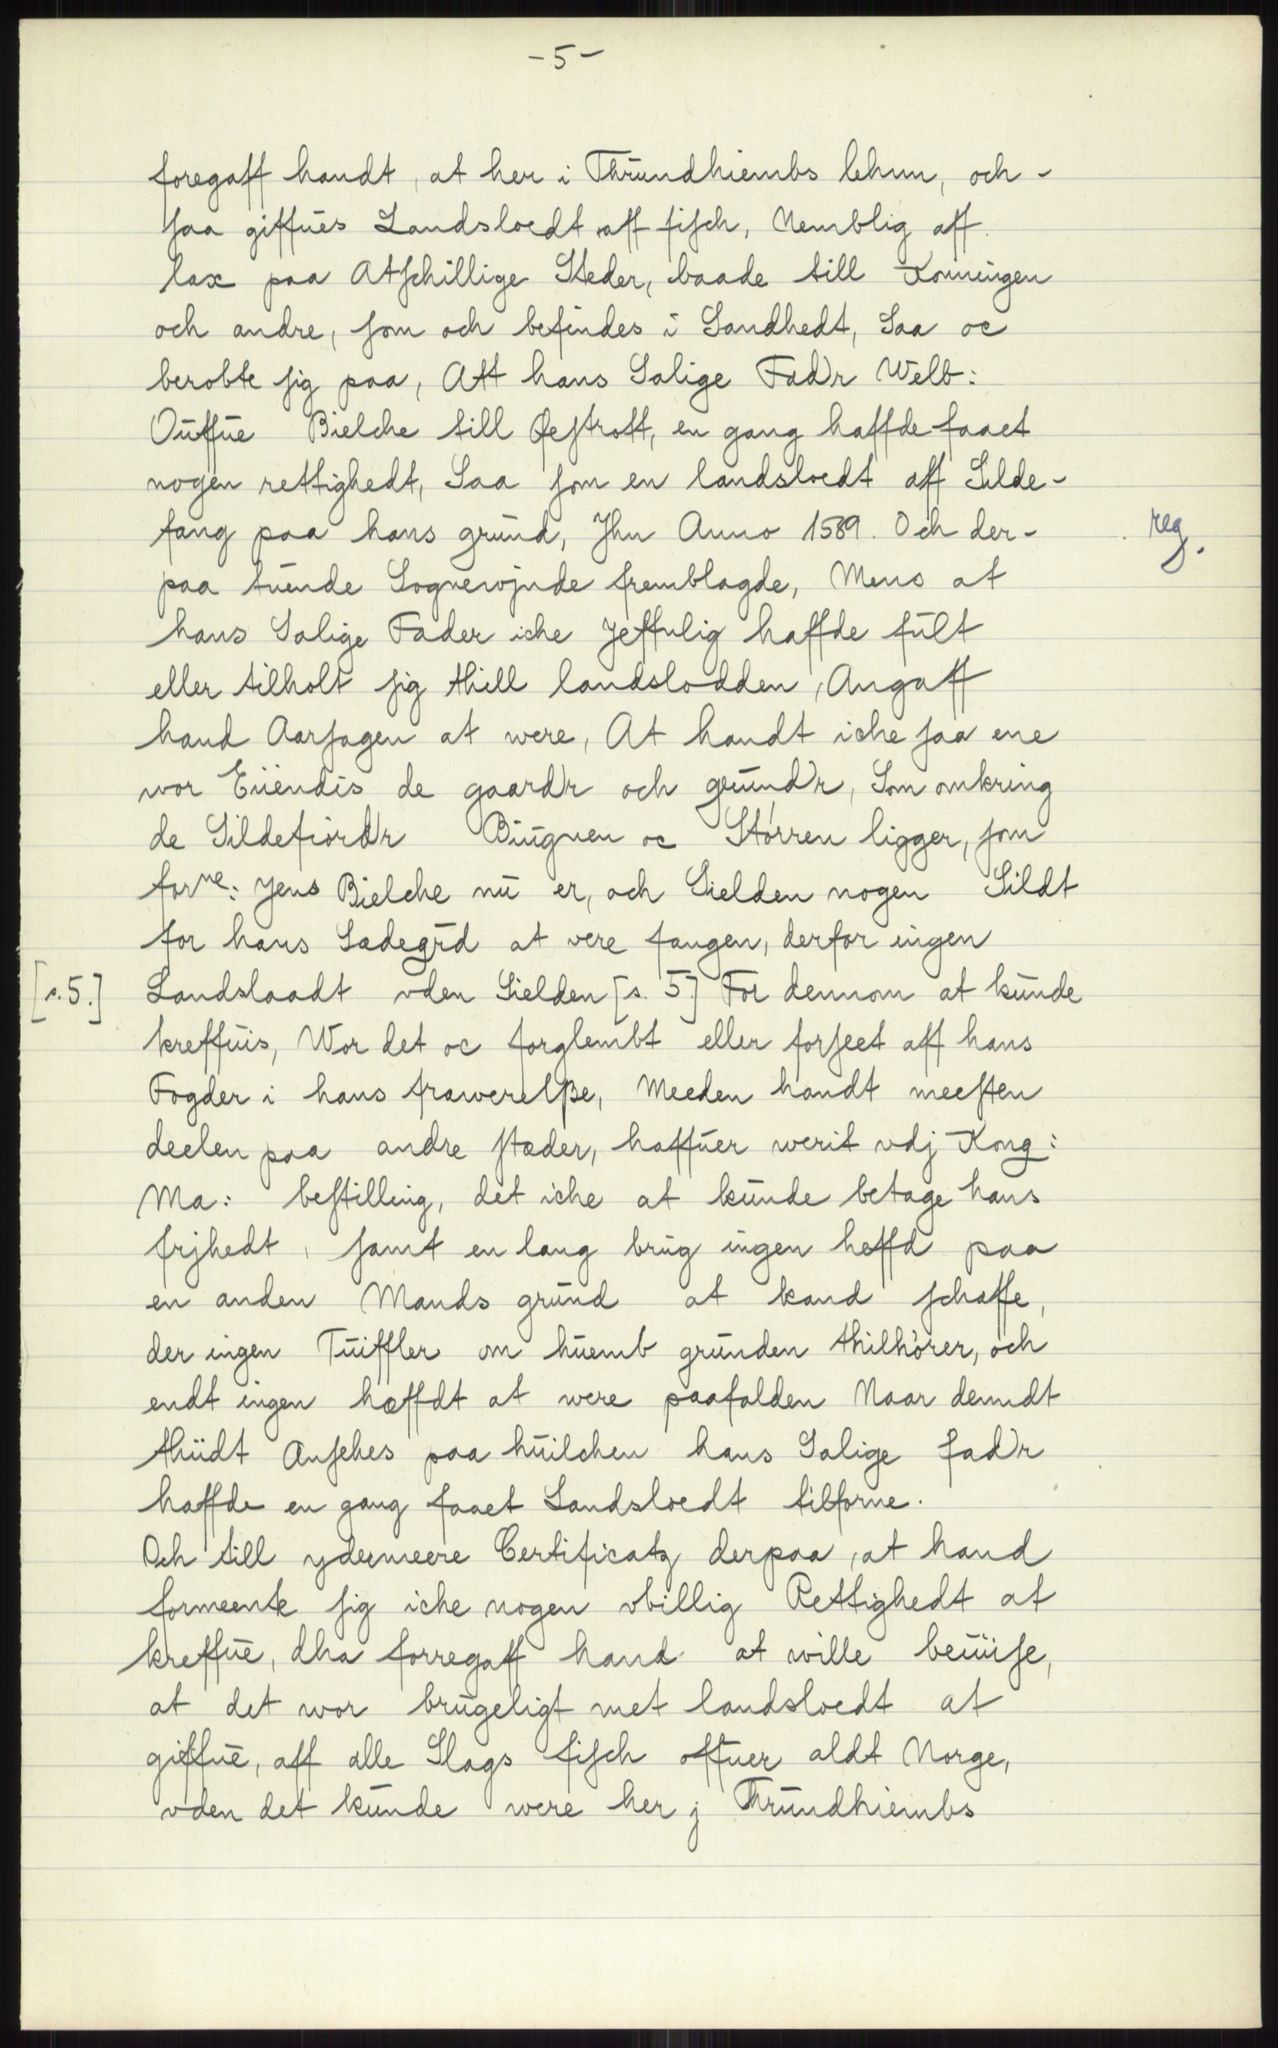 -5-
foregaff handt, at her i Thrundhiembs lehnn, och-
saa giffues Landsloedt aff fisch, Nemblig aff
lax paa Atschillige Steder, baade till Konningen
och andre, som och befindes i Sandhedt, Saa oc
berobte sig paa, Att hans Salige Fad'r Welb:
Ouffue Bielche till Østrott, en gang haffde faaet
nogen rettighedt, Saa som en landsloedt aff Silde-
fang paa hans grund, Jhn Anno 1589. Och der-
reg.
paa tuende Sognewjnde fremblagde, Mens at
hans Salige Fader iche Jeffnlig haffde fult
eller tilholt sig thill landslodden, Angaff
hand Aarsagen at were, At handt iche saa ene
wor Eiiendis de gaard'r och grund'r, Som omkring
de Sildefiord'r Biugnen oc Störren ligger, som
forne: Jens Bielche nu er, och Sielden nogen Sildt
for hans Sædegrd at vere fangen, derfor ingen
[s.5.] Landslaadt vden Sielden [s. 5] For dennom at kunde
kreffuis, Wor det oc forglembt eller forseet aff hans
Fogder i hans frawerelsse, Meeden handt meesten
deelen paa andre stæder, haffuer werit vdj Kong:
Ma: bestilling, det iche at kunde betage hans
frjhedt, samt en lang brug ingen heffd paa
en anden Mands grund at kand schaffe,
der ingen Tuiffler om huemb grunden thilhörer, och
endt ingen hæffdt at were paafalden Naar denndt
thiidt Ansehes paa huilchen hans Salige fad'r
haffde en gang faaet Landsloedt tilforne.
Och till ydermeere Certificatz derpaa, at hand
formeente sig iche nogen vbillig Rettighedt at
kreffue, dha forregaff hand at wille beuiise,
at det wor brugeligt met landsloedt at
giffue, aff alle Slags fisch offuer aldt Norge,
vden det kunde were her j Thrundhiembs